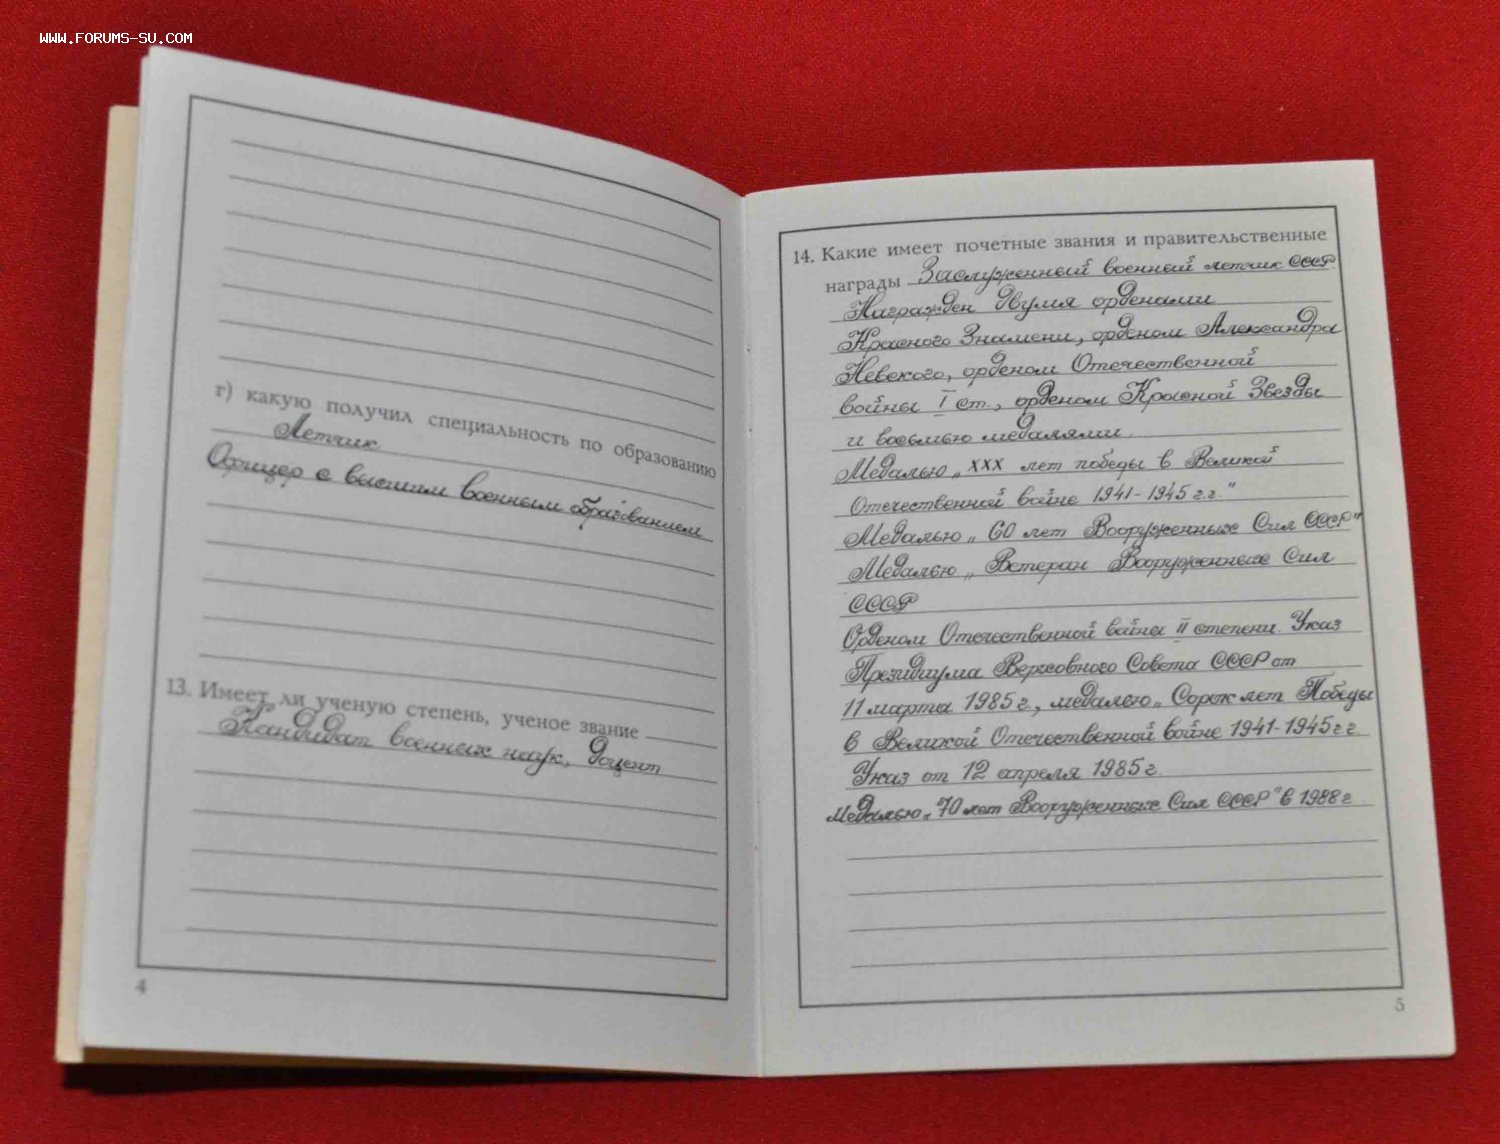 WWW.FORUMS-SU.COM
г) какую получил специальность по образованию
Летчик.
Офицер с высшим военным образованием
13. Имеет ли ученую степень, ученое звание
Кандидат военных наук, доцент
4
14. Какие имеет почетные звания и правительственные
награды Заслуженный военный летчик СССР.
Награжден двумя орденами
Красного Знамени, орденом Александра
Невского, орденом Отечественной
войны I ст., орденом Красной Звезды
и восемью медалями.
Медалью „XXX лет победы в Великой
Отечественной войне 1941-1945 г.г."
Медалью „60 лет Вооруженных Сил СССР"
Медалью „Ветеран Вооруженных Сил
СССР
Орденом Отечественной войны II степени. Указ
Президиума Верховного Совета СССР от
11 марта 1985 г., медалью „Сорок лет Победы
в Великой Отечественной войне 1941-1945 г.г.
Указ от 12 апреля 1985 г.
Медалью „70 лет Вооруженных Сил СССР" в 1988 г.
5